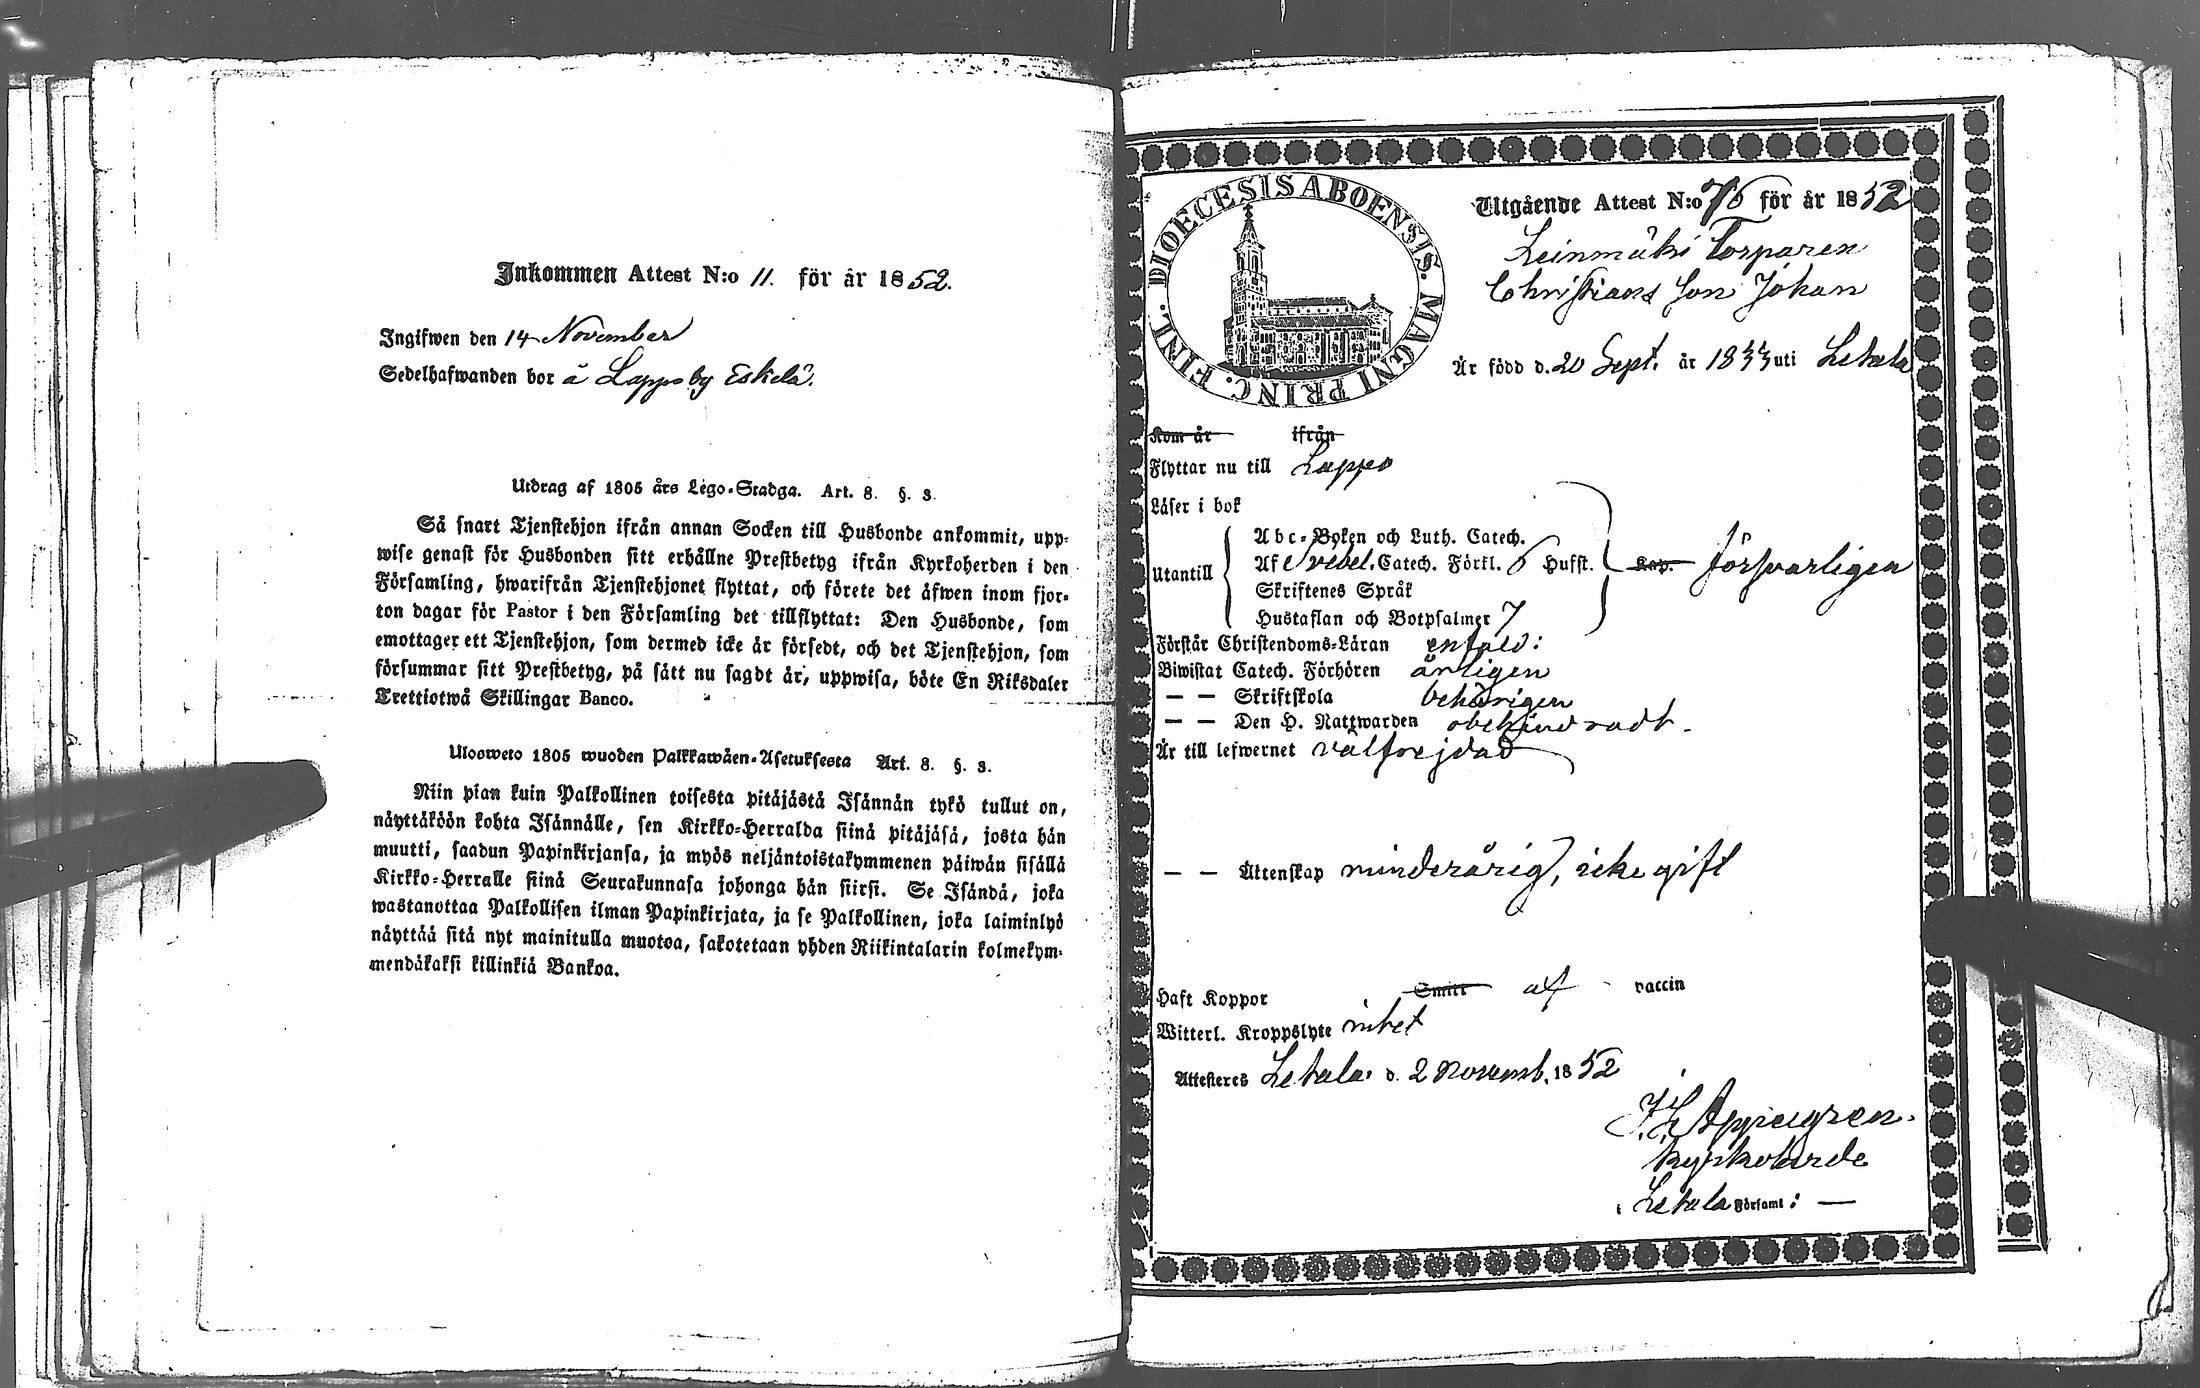 Inkommen Attest N:o 11. för år 1852.
Ingifwen den 14 November
Sedelhafwanden bor å Lappo by Eskelä.
Utdrag af 1805 års Lego-Stadga. Art. 8. §. 3.
Så snart Tjenstehjon ifrån annan Socken till Husbonde ankommit, upp-
wise genast för Husbonden sitt erhållne Prestbetyg ifrån Kyrkoherden i den
Församling, hwarifrån Tjenstehjonet flyttat, och förete det åfwen inom fjor-
ton dagar för Pastor i den Församling det tillflyttat: Den Husbonde, som
emottager ett Tjenstehjon, som dermed icke är försedt, och det Tjenstehjon, som
försummar sitt Prestbetyg, på sätt nu sagdt är, uppwisa, böte En Riksdaler
Trettiotwå Skillingar Banco.
Ulosweto 1805 wuoden Palkkawäen-Asetuksesta Art. 8. §. 3.
Niin pian kuin Palkollinen toisesta pitäjästä Isännän tykö tullut on,
näyttäköön kohta Isännälle, sen Kirkko-Herralda siinä pitäjäsä, josta hän
muutti, saadun Papinkirjansa, ja myös neljäntoistakymmenen päiwän sisällä
Kirkko-Herralle siinä Seurakunnasa johonga hän siirsi. Se Isändä, joka
wastanottaa Palkollisen ilman Papinkirjata, ja se Palkollinen, joka laiminlyö
näyttää sitä nyt mainitulla muotoa, sakotetaan yhden Riikintalarin kolmekym-
mendäkaksi killinkiä Bankoa.
DIOECESIS ABOENSIS. MAGNI PRINC. FINL.
Utgående Attest N:o 76 för år 1852
Leinmäki Torparen
Christians son Johan
Är född d. 20 Sept. år 1833 uti Letala
Kom år ifrån
Flyttar nu till Lappo
Läser i bok
Utantill
Abc-Boken och Luth. Catech.
Af Svebel. Catech. Förkl. 6 Hufst.
Skriftenes Språk
Hustaflan och Botpsalmer 7
Kap. försvarligen
Förstår Christendoms-Läran enfald:
Biwistat Catech. Förhören årligen
— — Skriftskola behörigen
— — Den H. Nattwarden obehindradt.
Är till lefwernet välfrejdad
— — Ättenskap minderårig, icke gift
Haft Koppor Smitt af vaccin
Witterl. Kroppslyte intet
Attesteres Letala d. 2 Novemb. 1852
Kyrkoherde
i Letala Församl: —